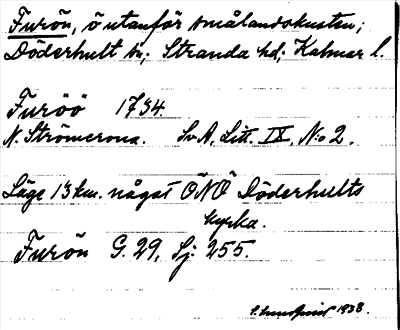 Furön, ö utanför smålandskusten;
Döderhult sn; Stranda hd; Kalmar l.
Furöö 1734.
N. Strömcrona. Sv. A. Litt. IX, No 2.
Läge 13 km. något ÖNÖ Döderhults
kyrka.
Furön G. 29, Sj: 255.
1938.